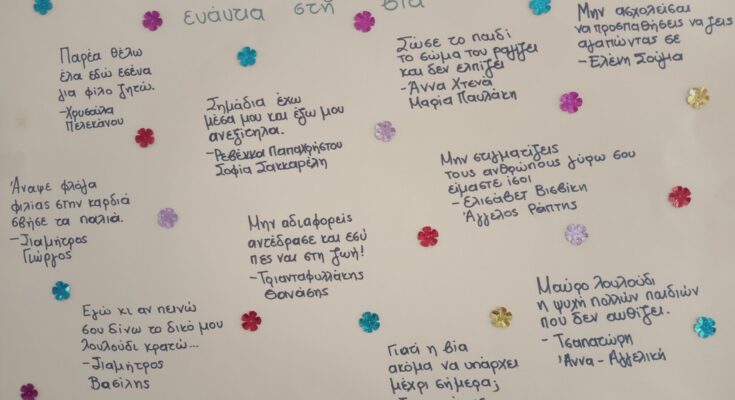 ενάντια στη βία
Παρέα θέλω
έλα εδώ εσένα
για φίλο ζητώ.
-Χρυσαυλα
Πελεκάνου
Σημάδια έχω
μέσα μου και έξω μου
ανεξίτηλα.
-Ρεβέκκα Παπαχρήστου
Σοφία Σακκαρέλη
Σώσε το παιδί
το σώμα του ραγίζει
και δεν ελπίζει
-Άννα Χτενά
Μαρία Παυλάκη
Μην ασχολείσαι
να προσπαθήσεις να ζεις
αγαπώντας σε
-Ελένη Σούμα
Άναψε φλόγα
φιλίας στην καρδιά
σβήσε τα παλιά.
-Γιαμήτρος
Γιώργος
Μην αδιαφορείς
αντέδρασε και εσύ
πες ναι στη ζωή!
-Τριανταφυλλάκης
Θανάσης
Μην στιγματίζεις
τους ανθρώπους γύρω σου
είμαστε ίσοι
-Ελισάβετ Βισβίκη
Άγγελος Ράπτης
Εγώ κι αν πεινώ
σου δίνω το δικό μου
λουλούδι κρατώ...
-Γιαμήτρος
Βασίλης
Γιατί η βία
ακόμα να υπάρχει
μέχρι σήμερα;
Μαύρο λουλούδι
η ψυχή πολλών παιδιών
που δεν ανθίζει.
- Τσαπατώρη
Άννα - Αγγελική